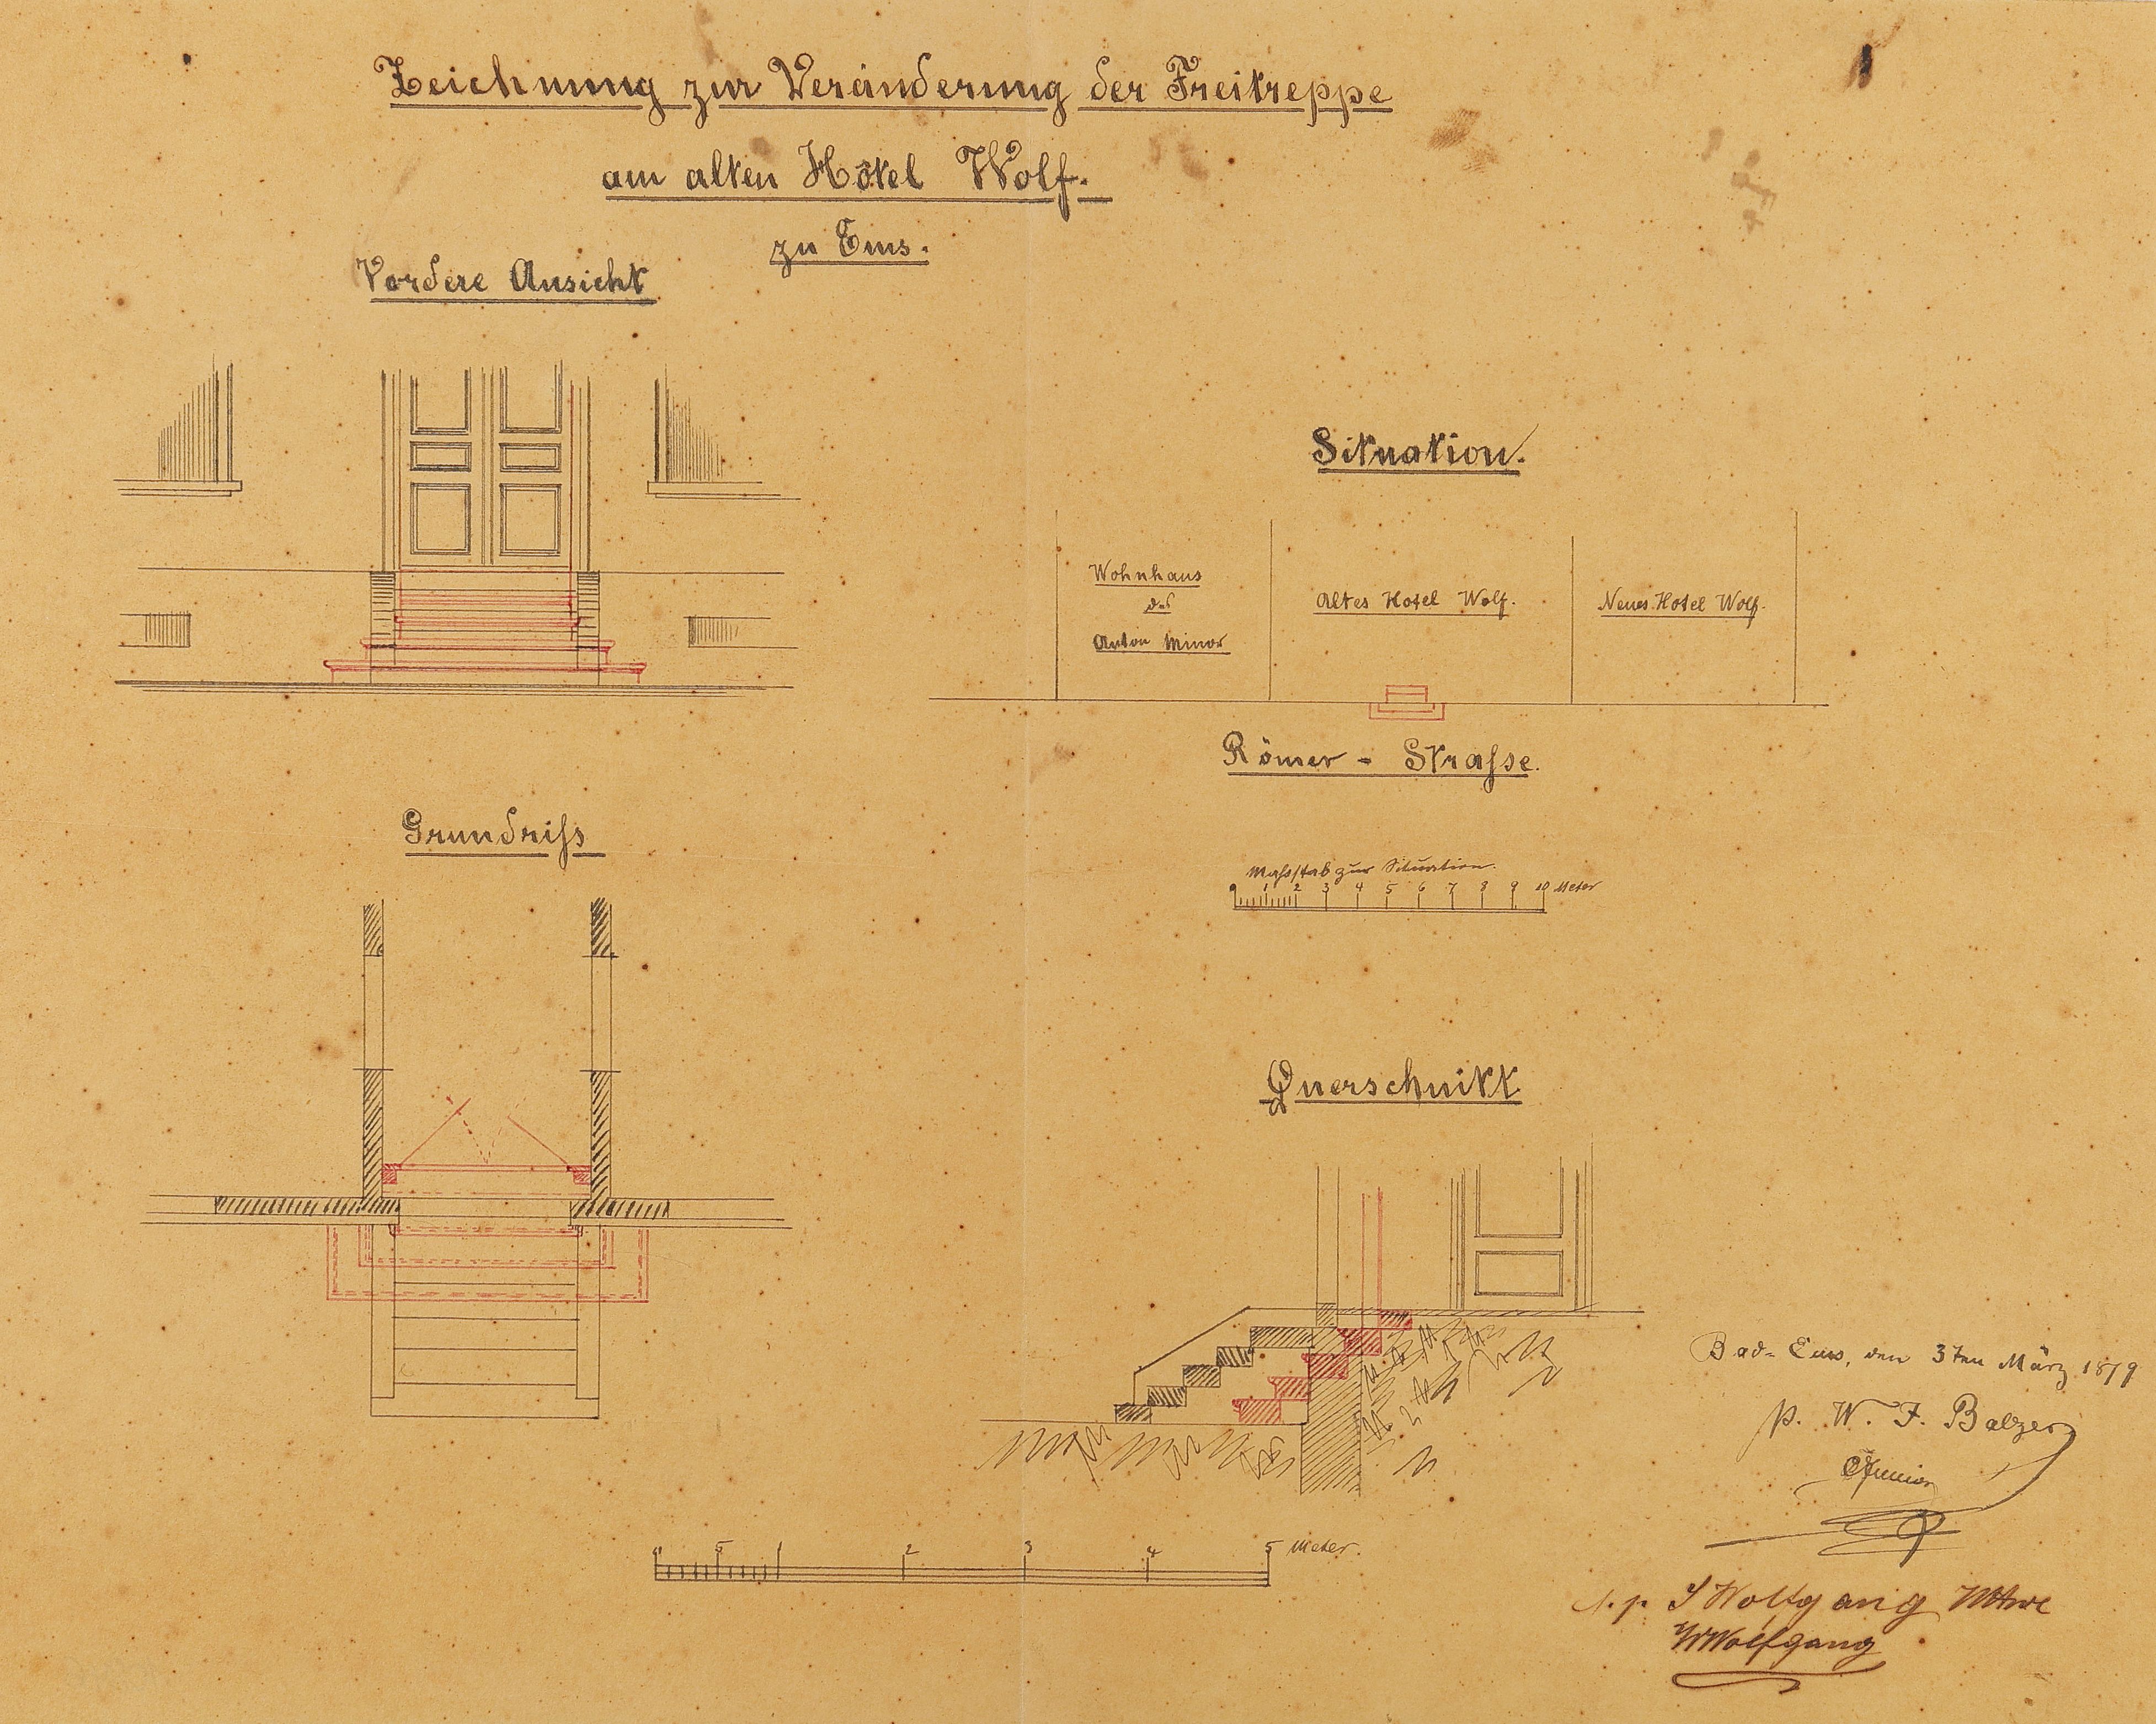 Zeichnung zur Veränderung der Freitreppe
am alten Hôtel Wolf.
zu Ems.
Vordere Ansicht
Situation.
Wohnhaus
des
Anton Minor
Altes Hotel Wolf.
Neues Hotel Wolf.
Römer - Strasse.
Grundriss
Massstab zur Situation.
0 1 2 3 4 5 6 7 8 9 10 Meter
Querschnitt
Bad-Ems, den 3ten März 1879
W. F. Balzer
Junior
0 5 1 2 3 4 5 Meter.
Wolfgang Wtwe
Wolfgang